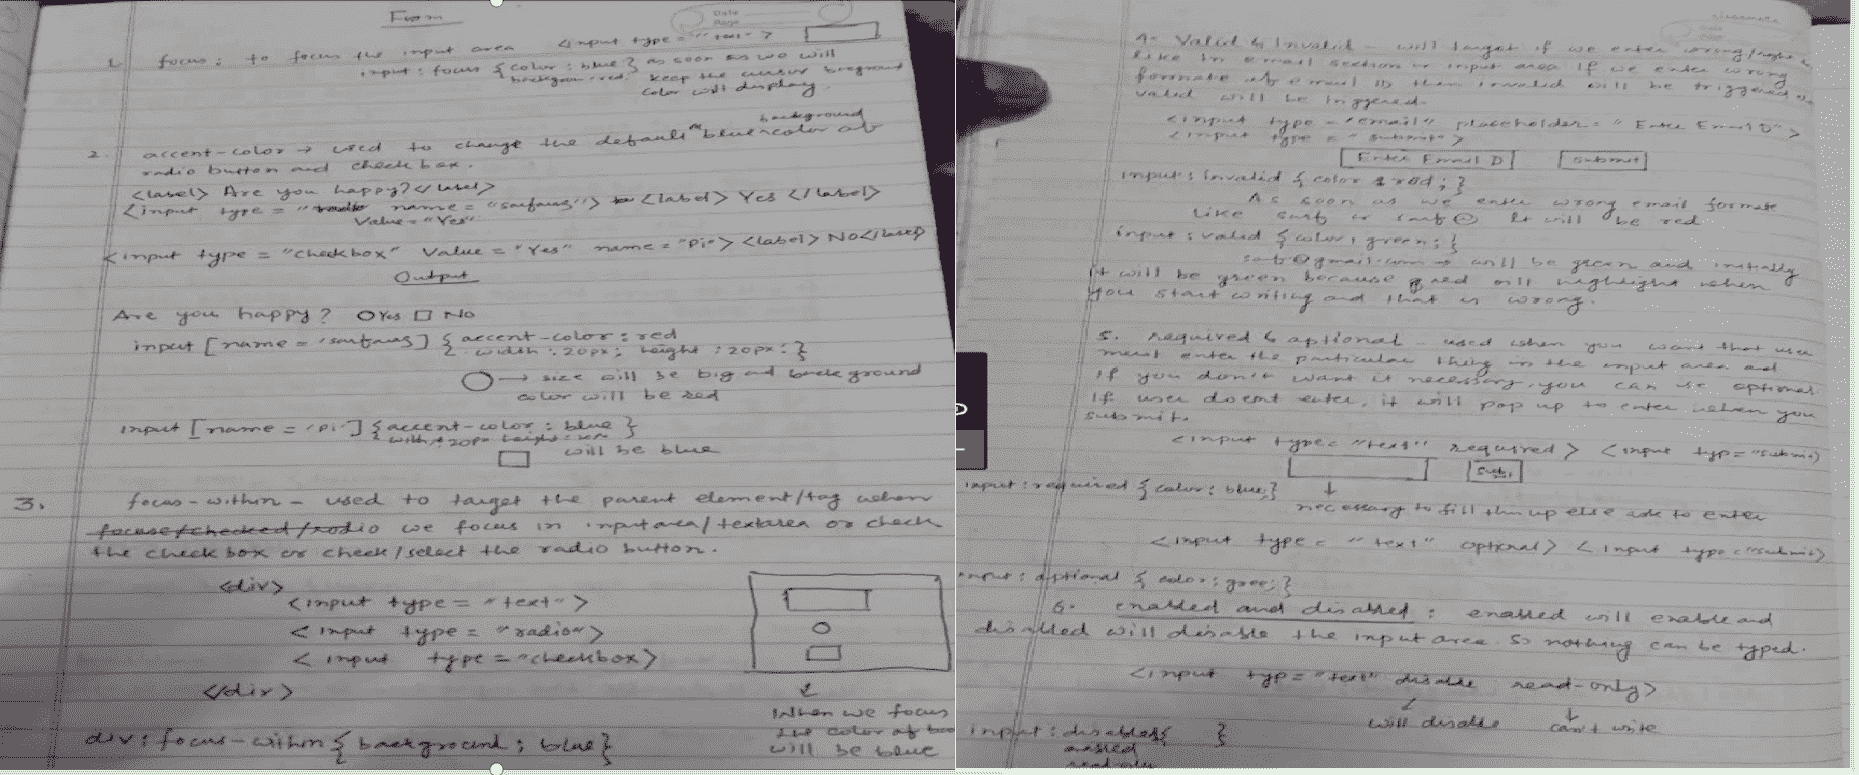 Form
Date
Page
1. focus: to focus the input area <input type="text">
input: focus {color: blue} as soon as we will
background: red. keep the cursor
color will display.
background
2. accent-color → used to change the default blue color of
radio button and check box.
<label> Are you happy?</label>
<input type=" name= > <label> Yes </label>
Value="Yes"
<input type="checkbox" Value="Yes" name="Pi"> <label> No</label>
Output
Are you happy? Yes No
input [name= ] {accent-color: red
width: 20px; height: 20px:}
→ size will be big and back ground
color will be red
input [name='Pi'] {accent-color: blue }
will be blue
3. focus-within - used to target the parent element/tag when
focuse/checked/radio we focus in inputarea/textarea or check
the check box or check/select the radio button.
<div>
<input type="text">
<input type="radio">
<input type="checkbox>
</div>
When we focus
the color of
will be blue
div: focus-within {background: blue}
4. Valid & Invalid - will target if we enter wrong/
like in email section or input area if we enter wrong
formate of email then invalid will be triggered
valid will be triggered.
<input type="email" placeholder="Enter Email ID">
<input type="submit">
Enter Email ID submit
input: invalid { color red; }
As soon as we enter wrong email formate
like or It will be red.
input: valid {color: green;}
will be green and initially
it will be green because red will highlight when
you start writing and that is wrong.
5. required & optional - used when you want that user
must enter the particular thing in the input area and
if you don't want it necessary, you can use optional
If user doesnt enter, it will pop up to enter when you
submit.
<input type="text" required> <input typ="submit)
input: required {color: blue;} ↓
necessary to fill up else ask to enter
<input type= "text" optional> <input type="submit>
input: optional { color: gree; }
6. enabled and disabled: enabled will enable and
disabled will disable the input area. So nothing can be typed.
<input typ="text" disable read-only>
will disable can't write
input: disabled{ }
enabled
read only